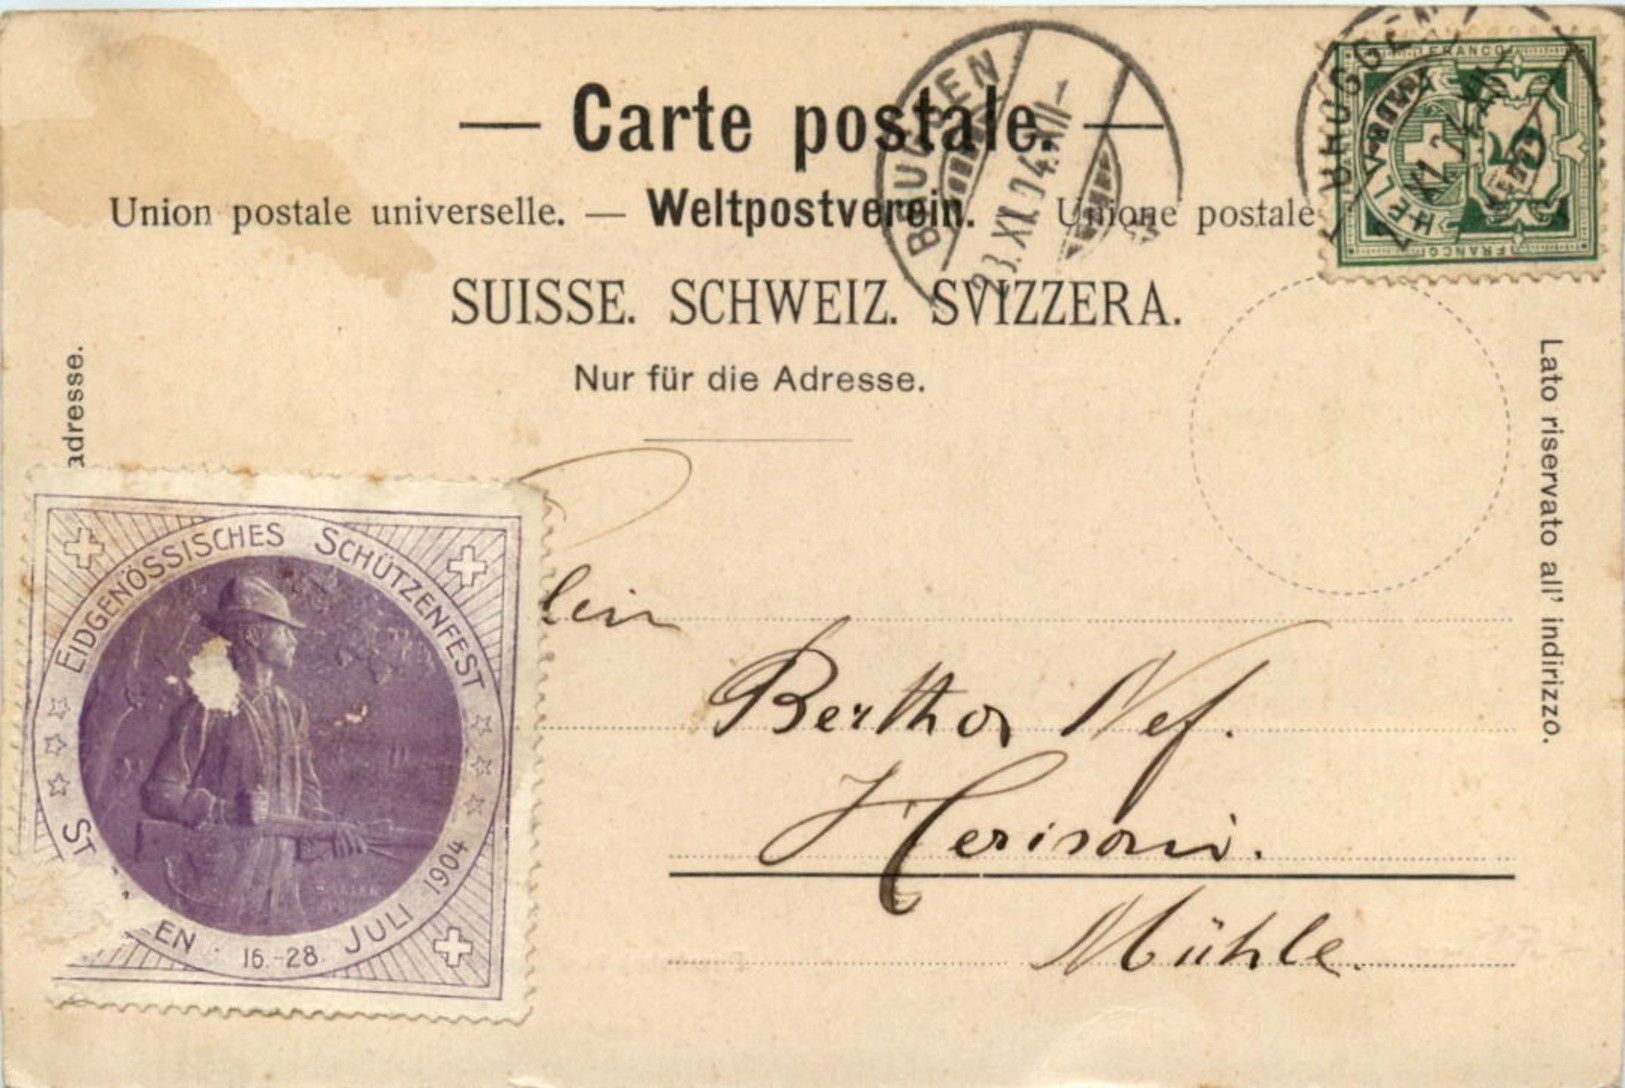 — Carte postale. —
Union postale universelle. — Weltpostverein. — Unione postale
SUISSE. SCHWEIZ. SVIZZERA.
Nur für die Adresse.
adresse.
Lato riservato all' indirizzo.
BRUGGEN
23.XII.04.XII-
BRUGGEN
FRANCO
HELV
FRANCO
EIDGENÖSSISCHES SCHÜTZENFEST
ST EN · 16.-28. JULI 1904
lein
Bertha Nef.
Herisau.
Mühle.